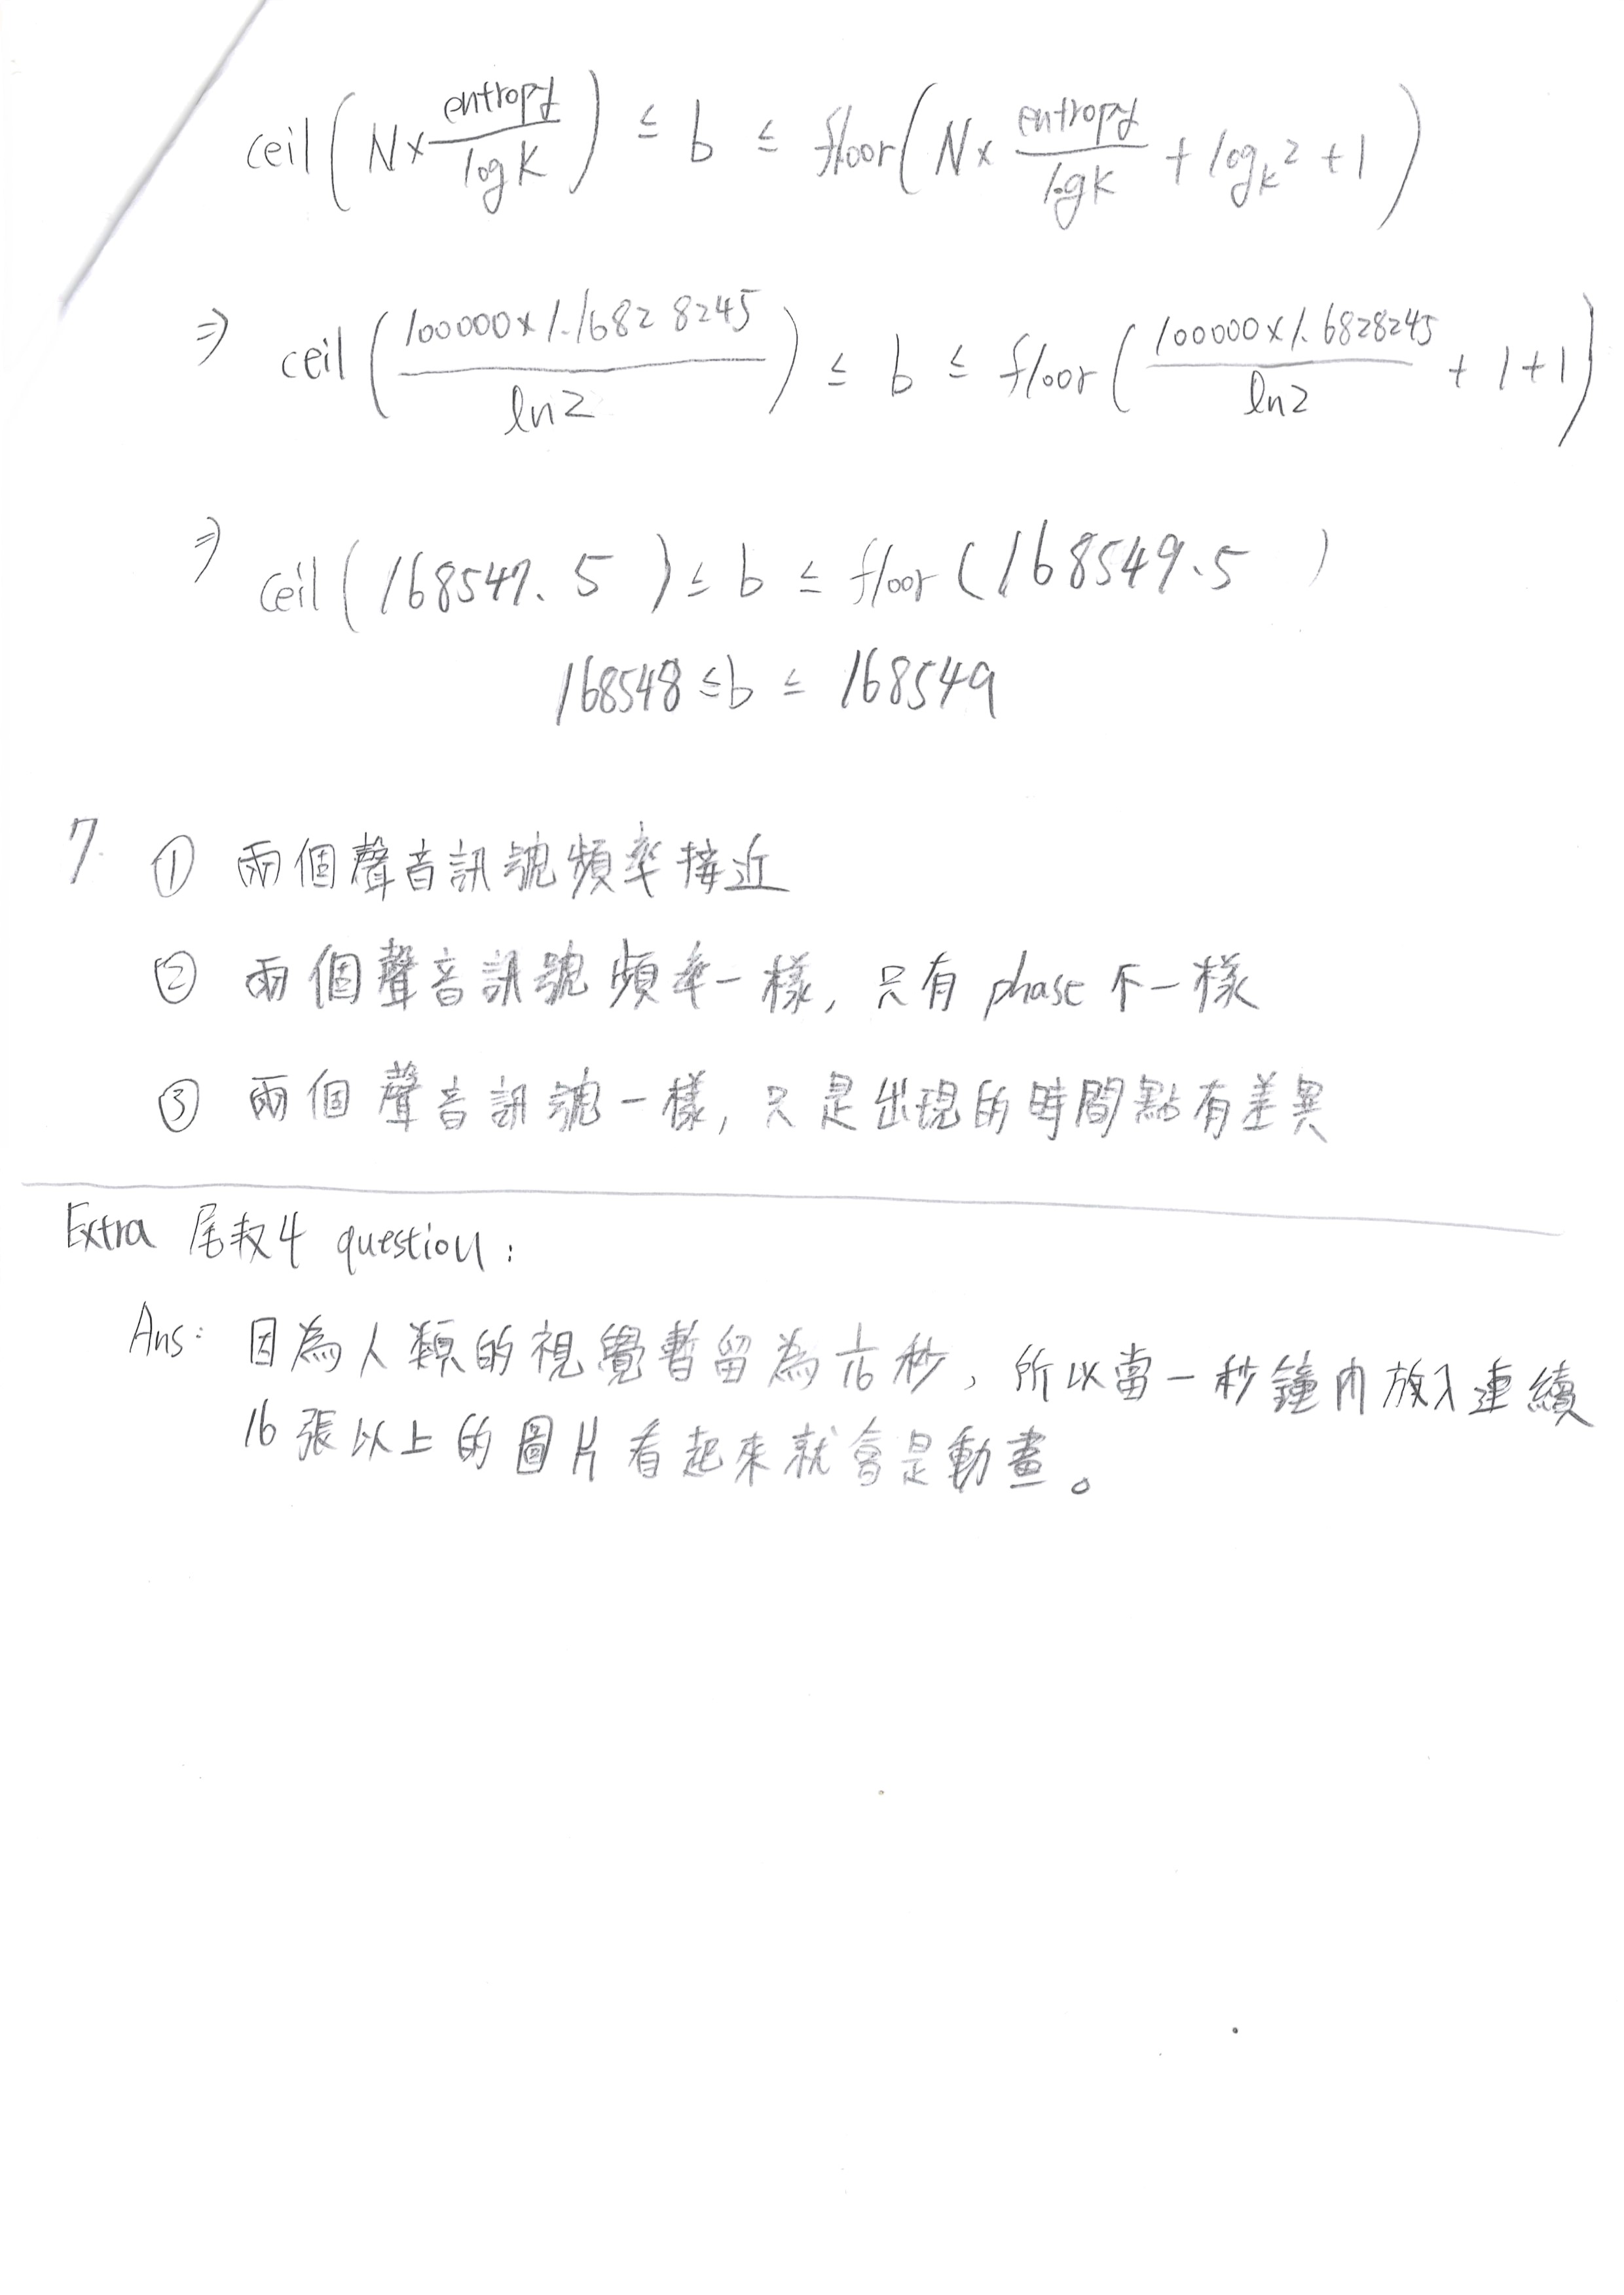 ceil(N× entropy/log k) ≤ b ≤ floor(N× entropy/log k + log_k 2 + 1)
⇒ ceil(100000×1.16828245/ln2) ≤ b ≤ floor(100000×1.6828245/ln2 + 1+1)
⇒ ceil(168547.5) ≤ b ≤ floor(168549.5)
168548 ≤ b ≤ 168549
7. ① 兩個聲音訊號頻率接近
② 兩個聲音訊號頻率一樣, 只有 phase 不一樣
③ 兩個聲音訊號一樣, 只是出現的時間點有差異
Extra 尾數4 question:
Ans: 因為人類的視覺暫留為 1/16 秒, 所以當一秒鐘內放入連續
16 張以上的圖片看起來就會是動畫。